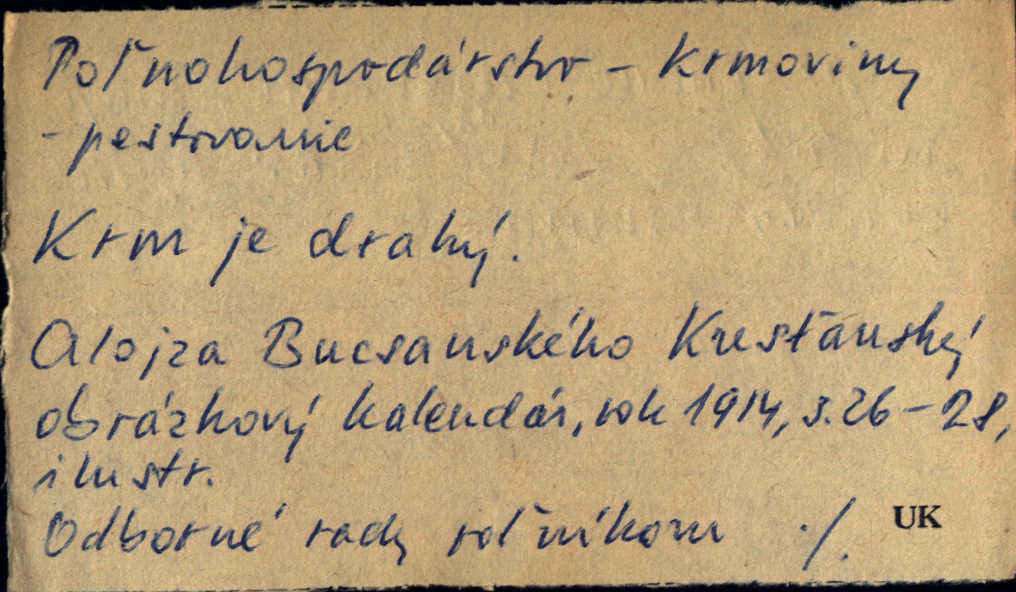 Poľnohospodárstvo - krmoviny
- pestovanie
Krm je drahý.
Alojza Bucsanského Kresťanský
obrázkový kalendár, rok 1914, s. 26-28,
ilustr.
Odborné rady roľníkom ./.
UK